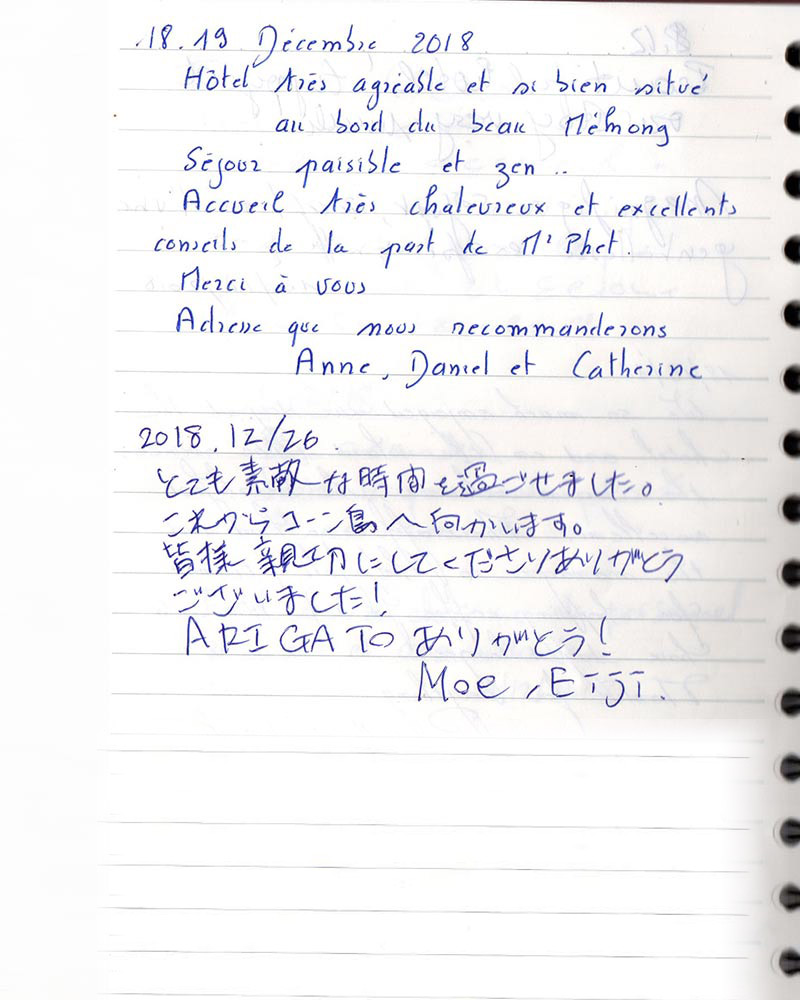 .18.19 Décembre 2018
Hôtel très agréable et si bien situé
au bord du beau Mékong
Séjour paisible et zen..
Accueil très chaleureux et excellents
conseils de la part de Mr Phet.
Merci à vous
Adresse que nous recommanderons
Anne, Daniel et Catherine
2018.12/26.
とても素敵な時間を過ごせました。
これからコーン島へ向かいます。
皆様親切にしてくださりありがとう
ございました!
ARIGATO ありがとう!
Moe, Eiji.